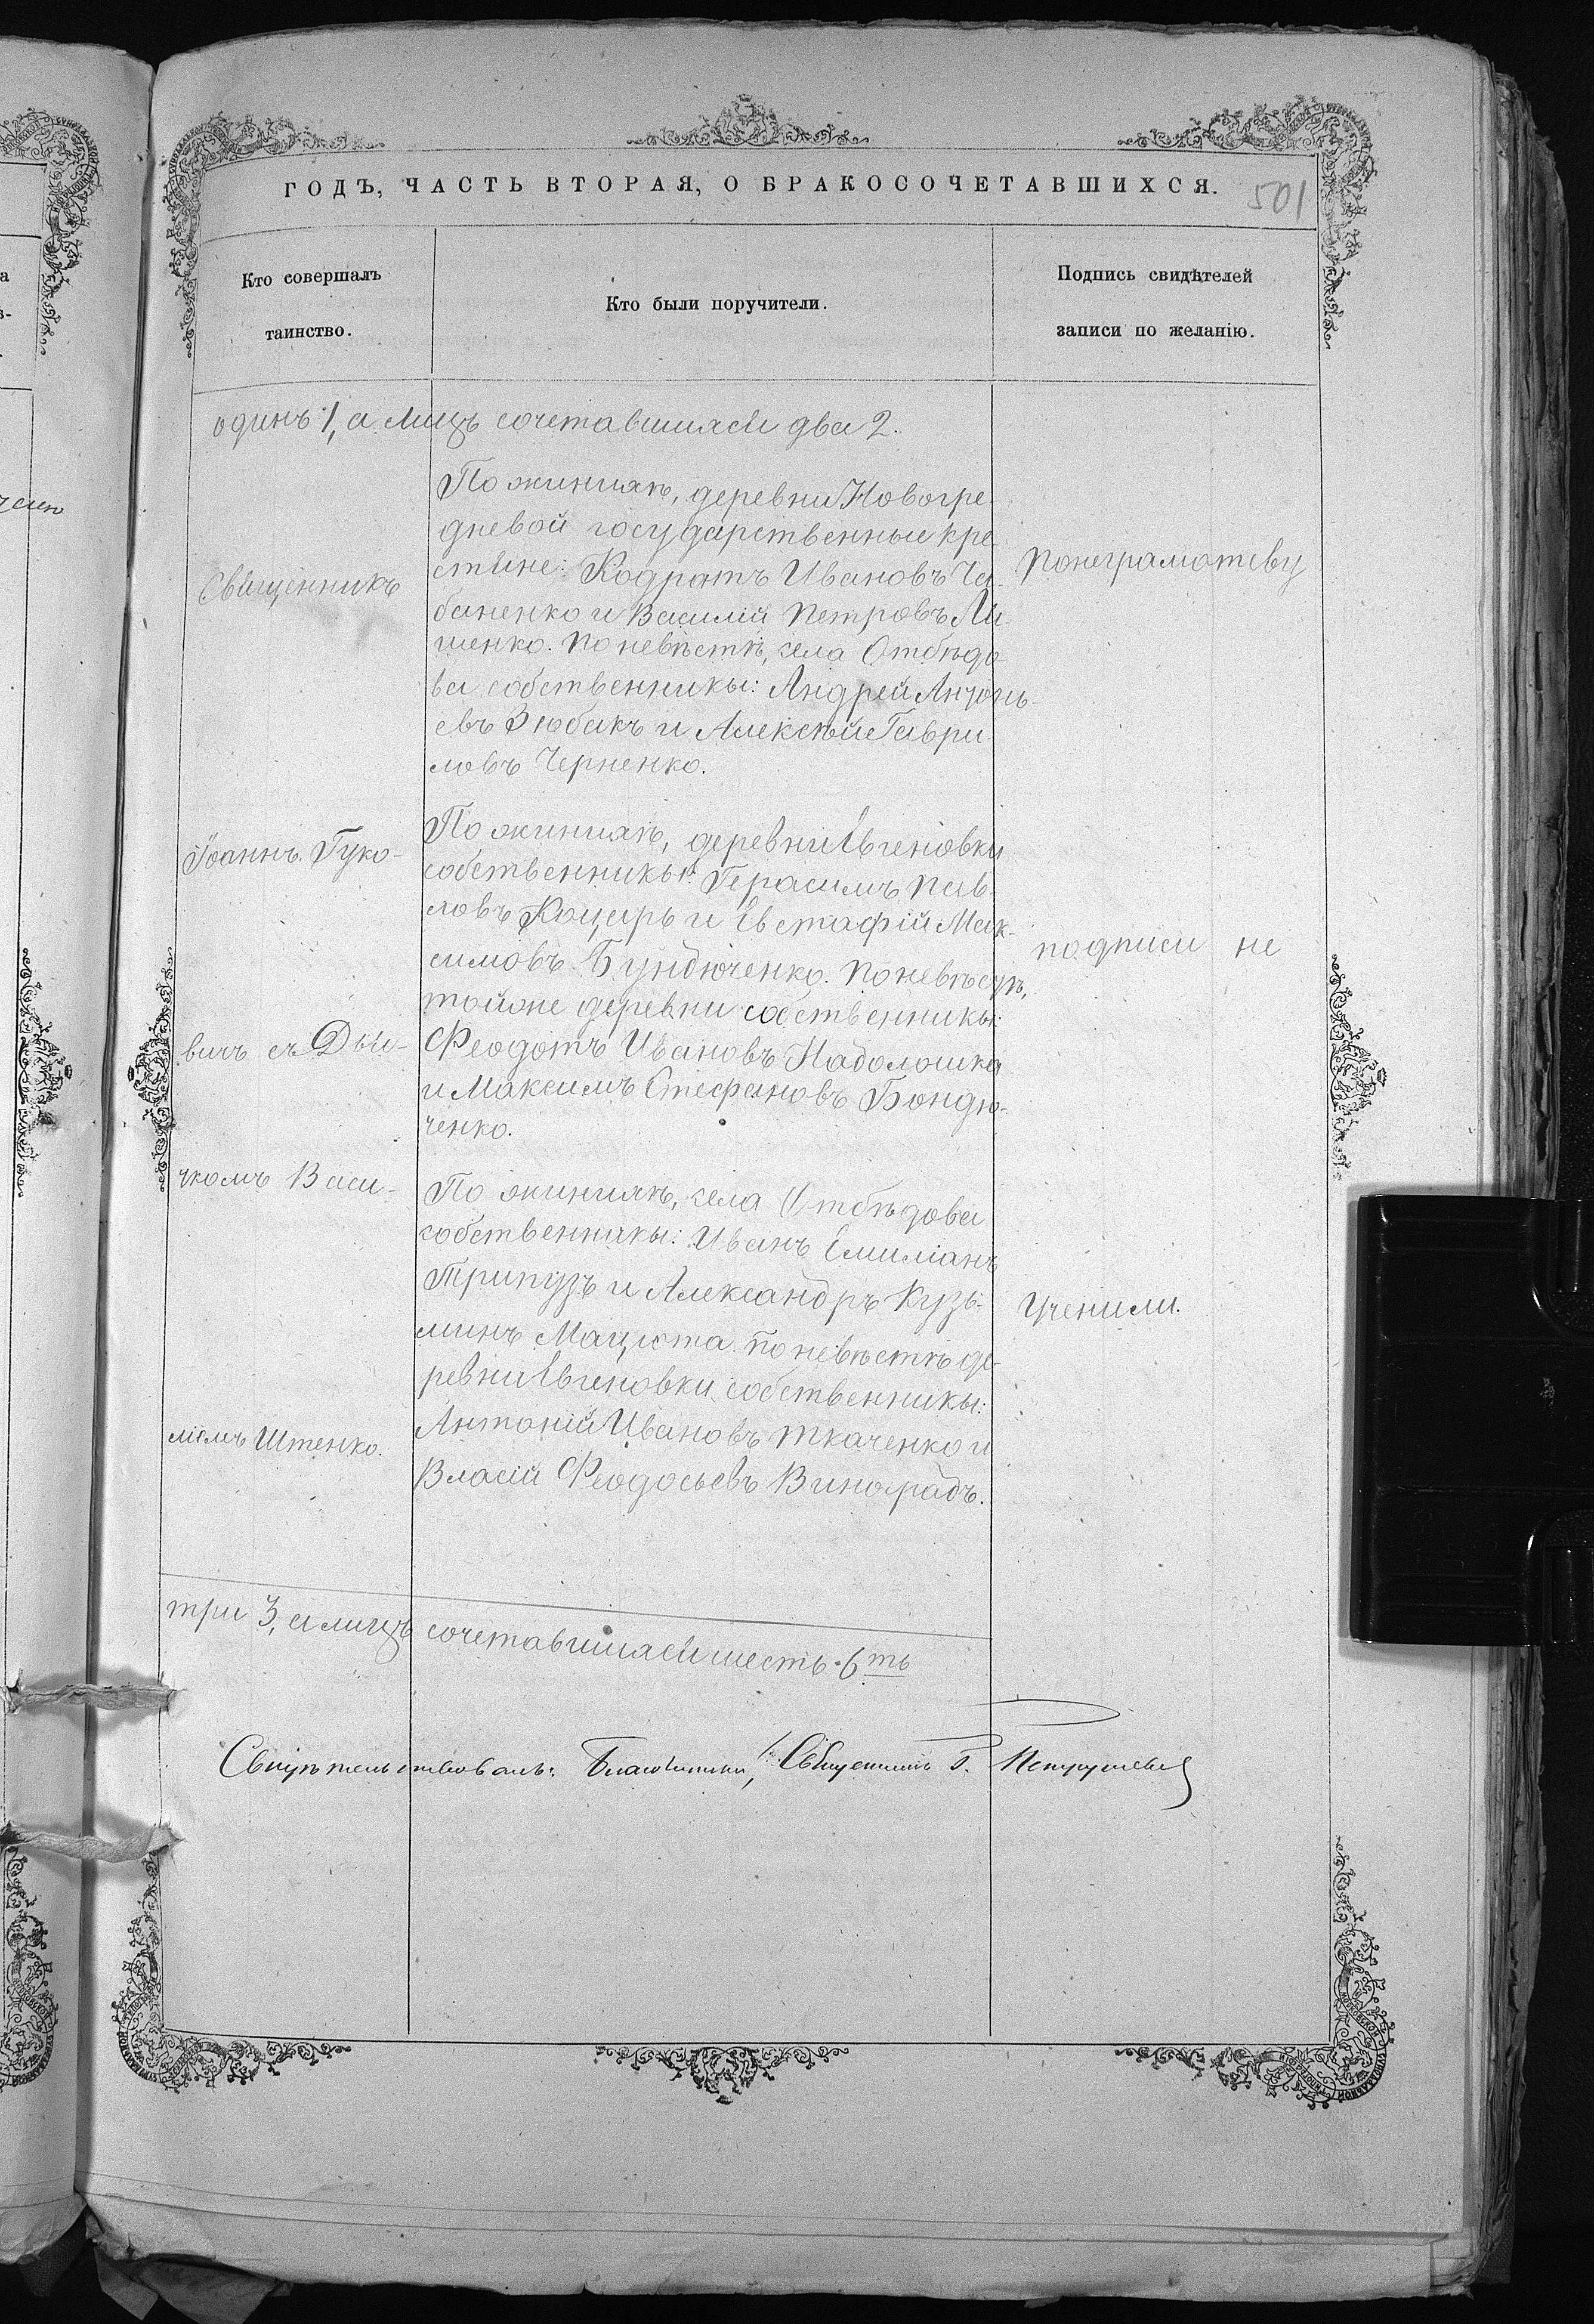 ГОДЪ, ЧАСТЬ ВТОРАЯ, О БРАКОСОЧЕТАВШИХСЯ.
501
Кто совершалъ
таинство.
Кто были поручители.
Подпись свидѣтелей
записи по желанію.
одинъ 1, а лицъ сочетавшихся два 2.
Священникъ
Іоаннъ Гуко-
вичъ съ Дья-
чкомъ Васи-
ліемъ Штенко.
По женихѣ, деревни Новогре-
дневой государственные кре-
стяне: Кодратъ Ивановъ Ча-
баненко и Василій Петровъ Ли-
шенко. По невѣстѣ, села Отбѣдо-
ва собственники: Андрей Антонь-
евъ Зюбакъ и Алексѣй Гаври-
ловъ Черненко.
По женихѣ, деревни Евгеновки
собственники: Герасимъ Пав-
ловъ Коцарь и Евстафій Мак-
симовъ Бундюченко. По невѣстѣ,
тойже деревни собственники:
Феодотъ Ивановъ Надолошка
и Максимъ Стефановъ Бондю-
ченко.
По женихѣ, села Отбѣдова
собственники: Иванъ Емиліанъ
Трипузъ и Александръ Кузь-
минъ Мацюта. По невѣстѣ де-
ревни Евгеновки собственники:
Антоній Ивановъ Ткаченко и
Власій Феодосьевъ Виноградъ.
Понеграмотству
подписи не
Учинили.
три 3, а лицъ сочетавшихся шесть 6ть
Свидѣтельствовалъ: Благочинный, Священникъ Г.